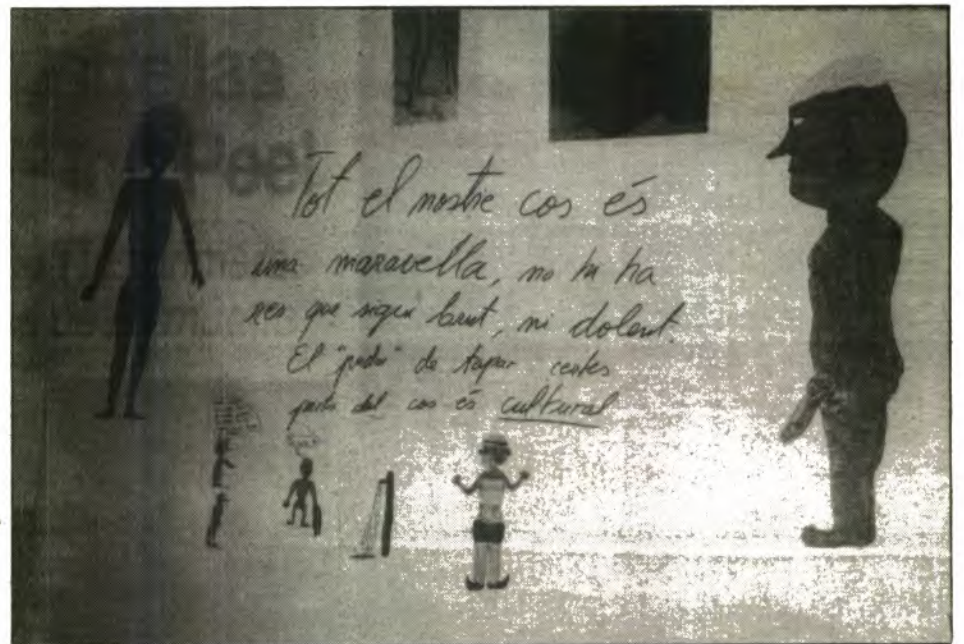 Tot el nostre cos és
una maravella, no hi ha
res que sigui brut, ni dolent.
El "pudor" de tapar certes
parts del cos és cultural